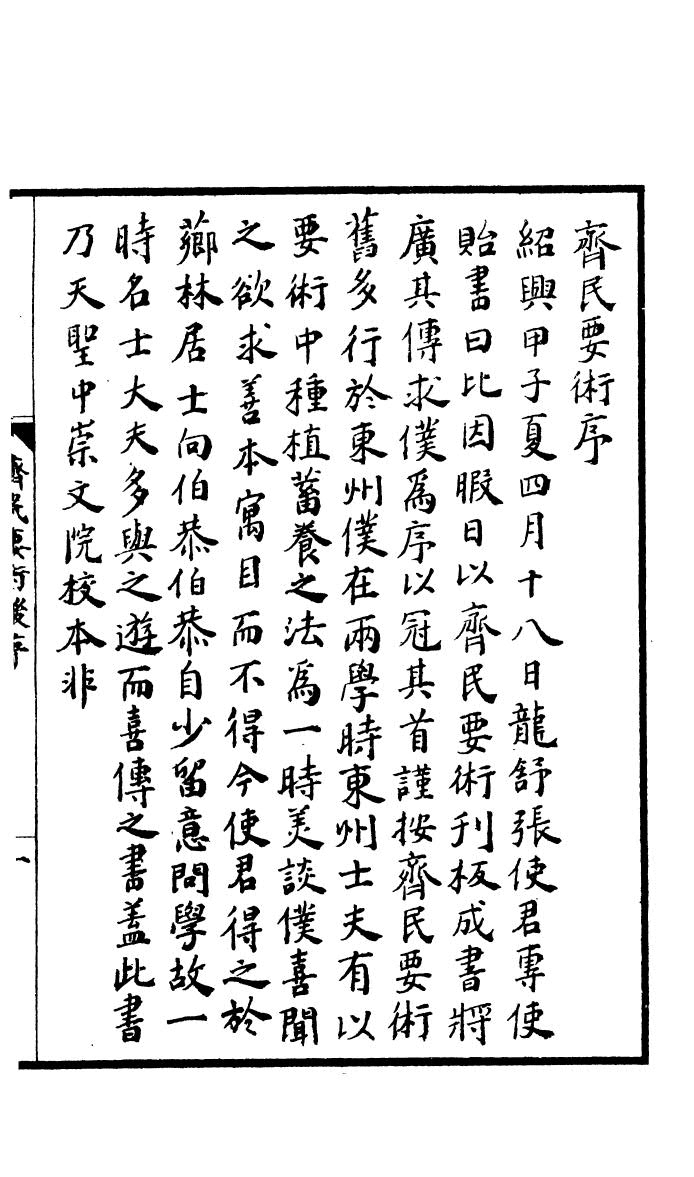 齊民要術序
紹興甲子夏四月十八日龍舒張使君專使
貽書曰比因暇日以齊民要術刋板成書將
廣其傳求僕爲序以冠其首謹按齊民要術
舊多行於東州僕在兩學時東州士夫有以
要術中種植蓄養之法爲一時美談僕喜聞
之欲求善本寓目而不得今使君得之於
薌林居士向伯恭伯恭自少留意問學故一
時名士大夫多與之遊而喜傳之書蓋此書
乃天聖中崇文院校本非
齊民要術後序
一